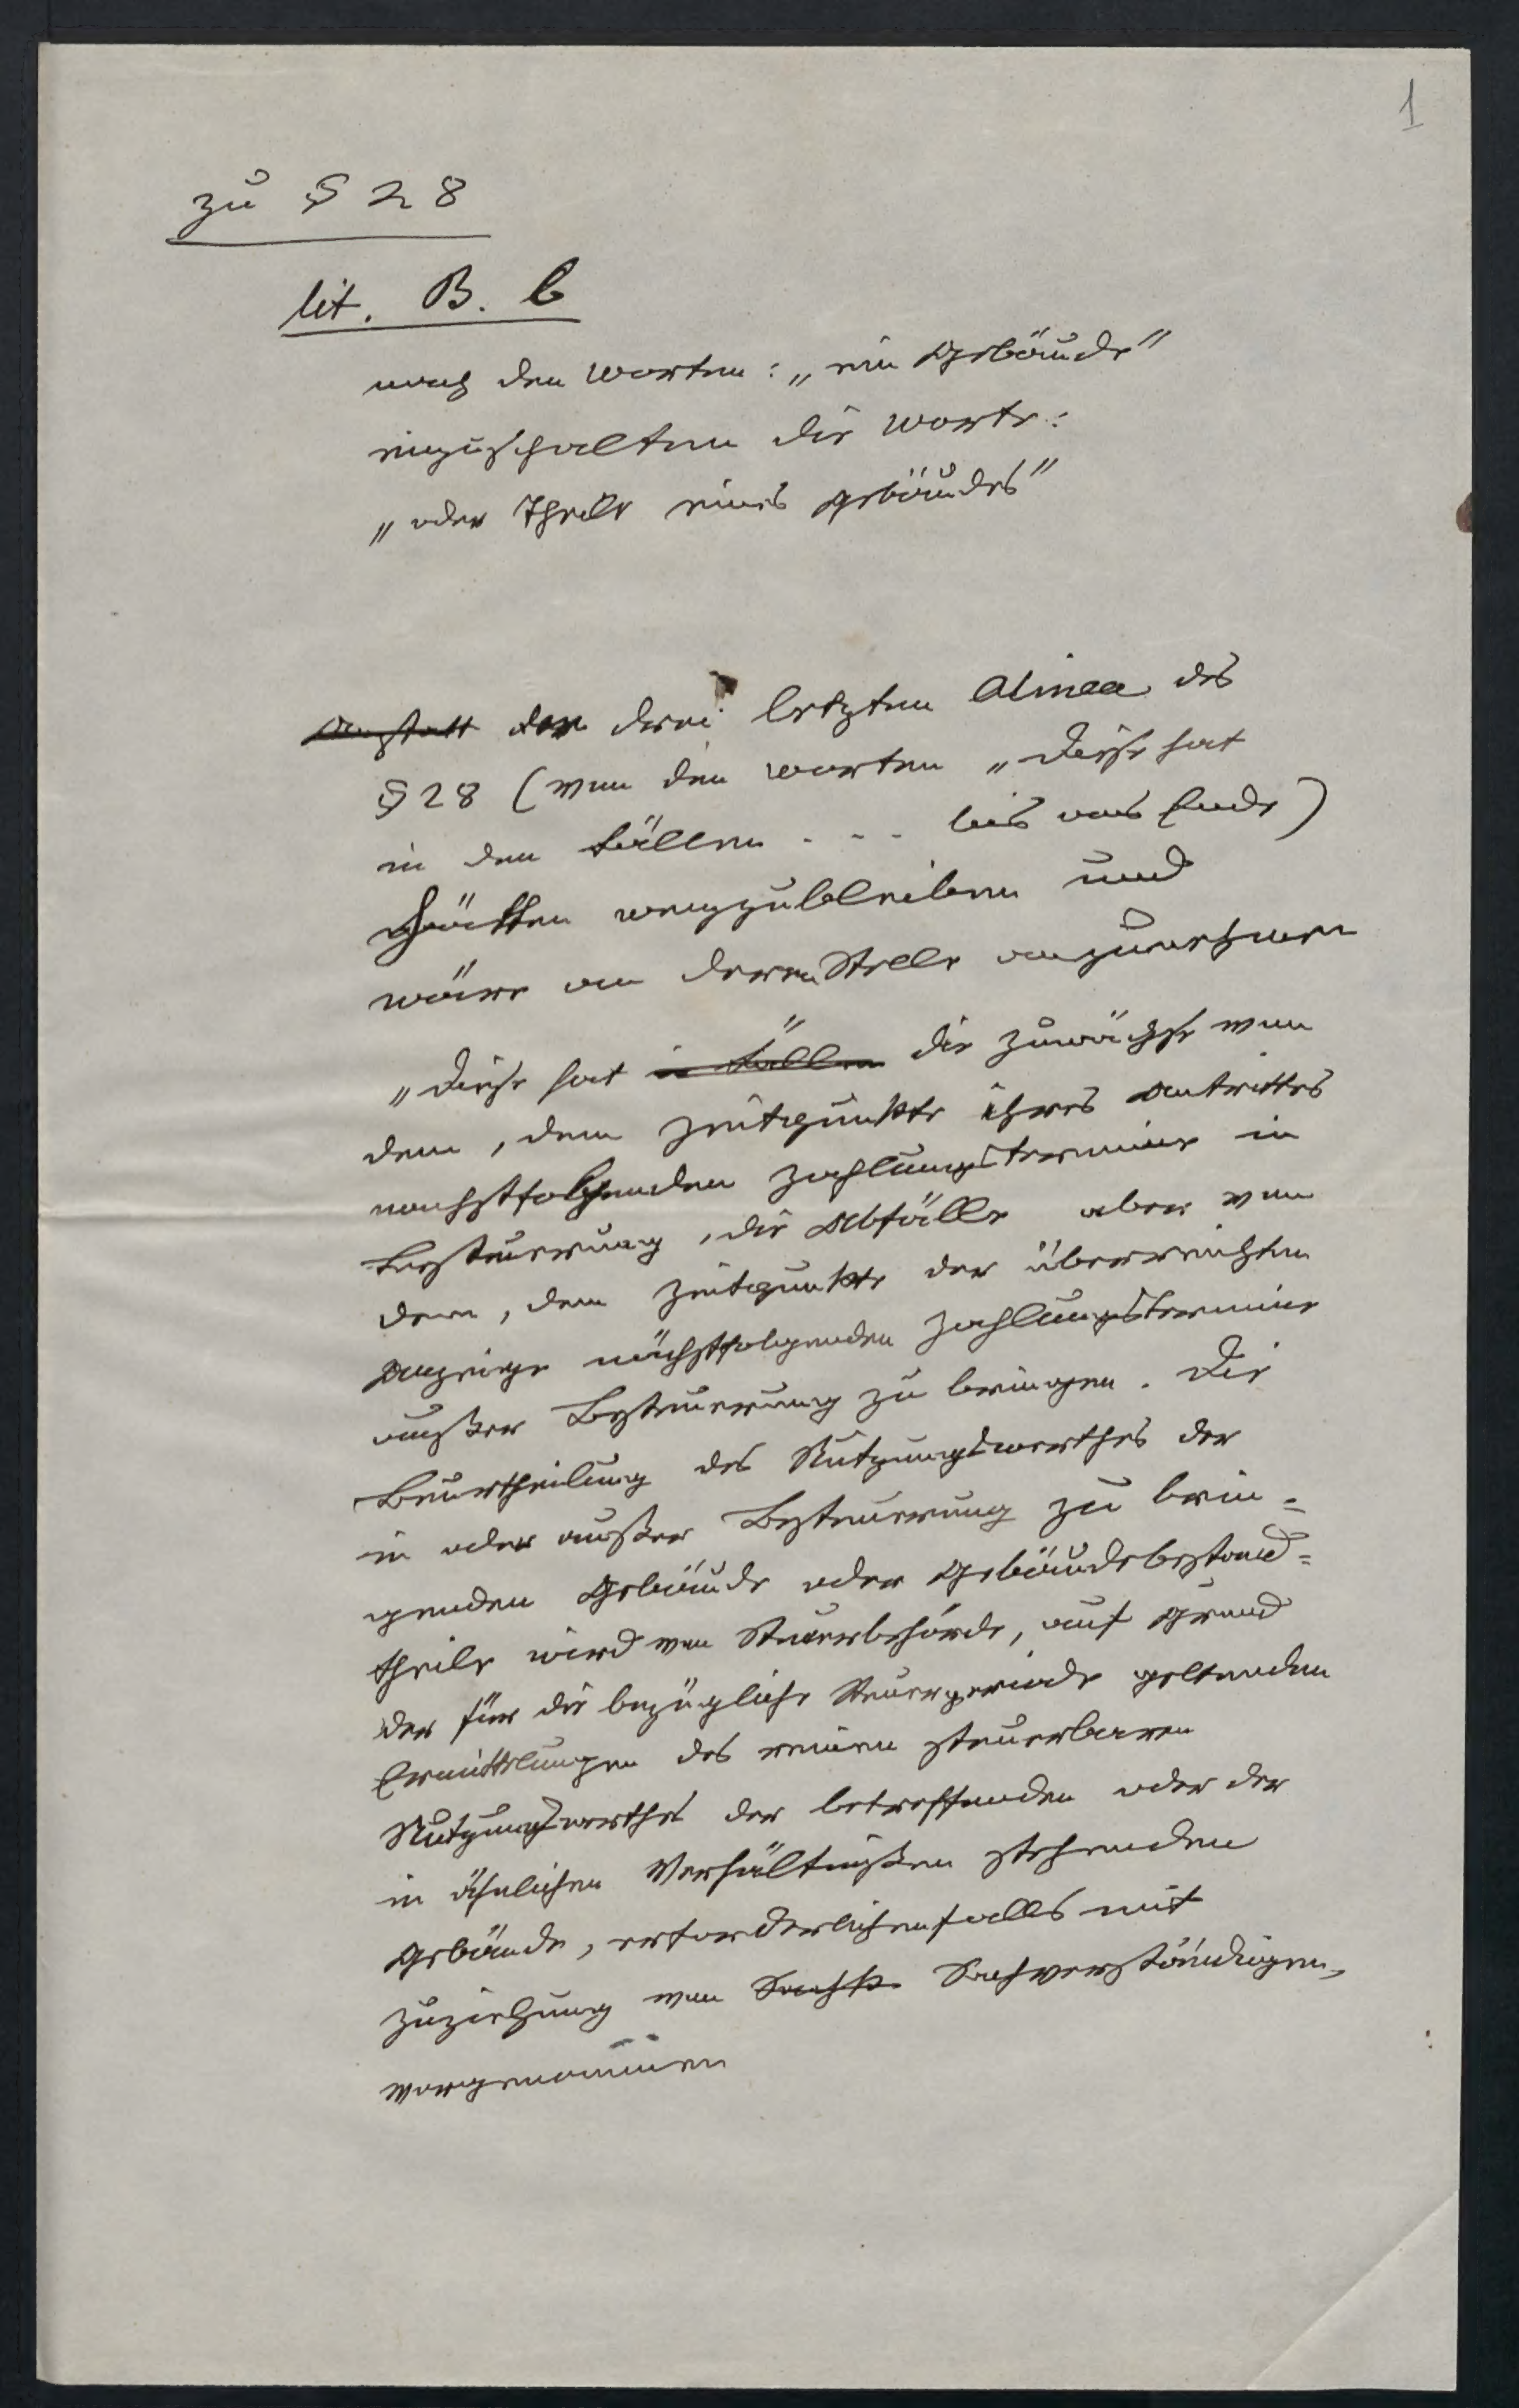 1
zu § 28
lit. B. b
nach den Worten: „ein Gebäude"
einzuschalten die Worte:
„oder Theile eines Gebäudes"
Anstatt der drei letzten Alinea des
§ 28 (von den Worten „Diese hat
in den Fällen . . . bis ans Ende)
hätten wegzubleiben und
wäre an deren Stelle anzunehmen
„Diese hat in Fällen die Zuwächse von
dem, dem Zeitpunkte ihres Antrittes
nachstfolgenden Zahlungstermine in
Besteuerung, die Abfälle aber von
dem, dem Zeitpunkte der überreichten
Anzeige nächstfolgenden Zahlungstermine
außer Besteuerung zu bringen. Die
Beurtheilung des Nutzungswerthes der
in oder außer Besteuerung zu brin=
genden Gebäude oder Gebäudebestand=
theile wird von Steuerbehörde, auf Grund
der für die bezügliche Steuerperiode geltenden
Ermittelungen des reinen steuerbaren
Nutzungswerthes der betreffenden oder der
in ähnlichen Verhältnißen stehenden
Gebäude, erforderlichenfalls mit
Zuziehung von Sachverständigen,
vorgenommen